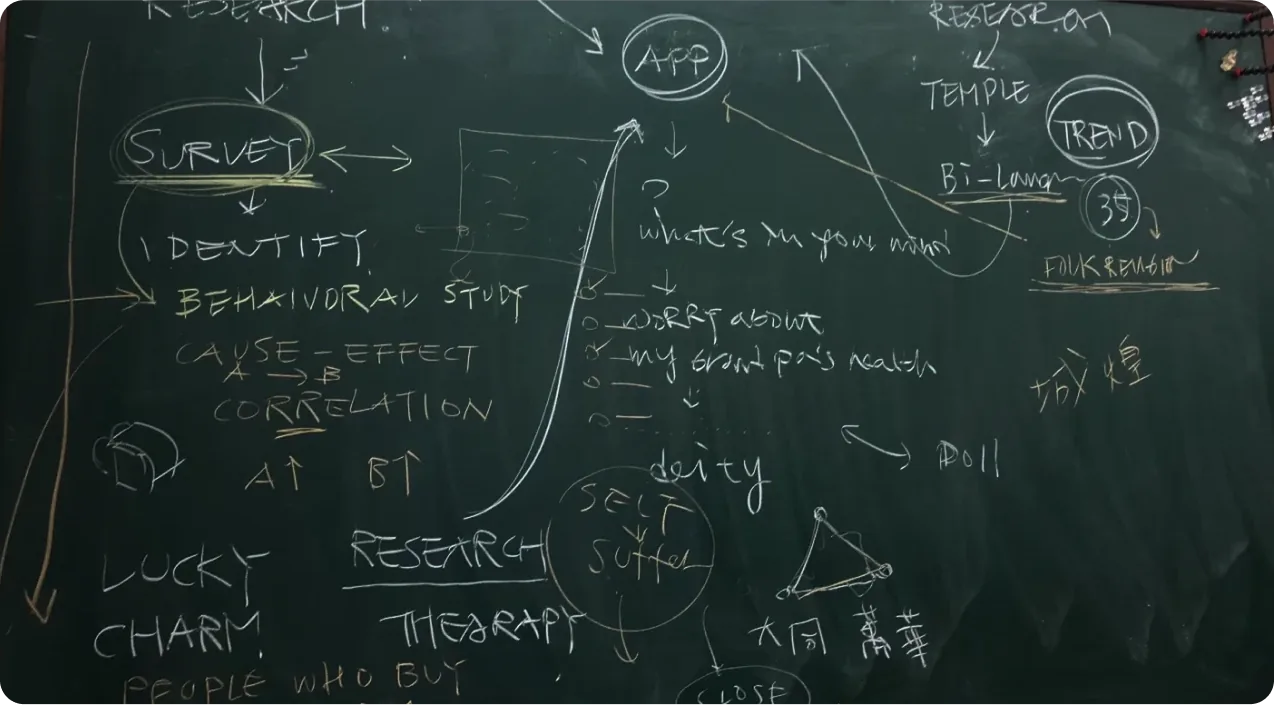 RESEARCH
SURVEY
IDENTIFY
BEHAIVORAL STUDY
CAUSE - EFFECT
A → B
CORRELATION
A↑ B↑
LUCKY
CHARM
PEOPLE WHO BUY
RESEARCH
THERAPY
APP
?
what's in your mind
worry about
my grandpa's health
deity
SELF
suffer
CLOSE
Doll
大同 萬華
RESEARCH
TEMPLE
TREND
Bi-
FOLK RELIGION